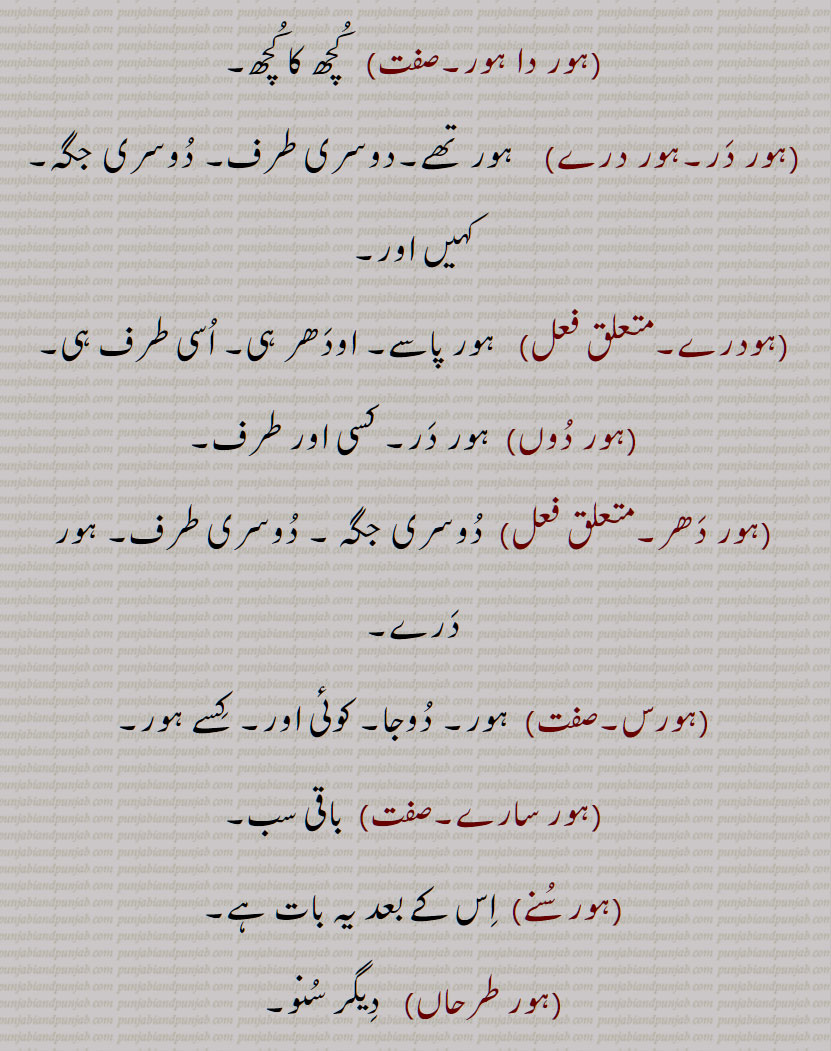 (ہور دا ہور۔صفت) کُچھ کا کُچھ۔
(ہور دَر۔ہور درے) ہور تھے۔دوسری طرف۔ دُوسری جگہ۔
کہیں اور۔
(ہودرے۔متعلق فعل) ہور پاسے۔ اودَھر ہی۔ اُسی طرف ہی۔
(ہور دُوں) ہور دَر۔ کسی اور طرف۔
(ہور دَھر۔متعلق فعل) دُوسری جگہ ۔ دُوسری طرف۔ ہور
دَرے۔
(ہورس۔صفت) ہور۔ دُوجا۔ کوئی اور۔ کِسے ہور۔
(ہور سارے۔صفت) باقی سب۔
(ہور سُنے) اِس کے بعد یہ بات ہے۔
(ہور طرحاں) دِیگر سُنو۔